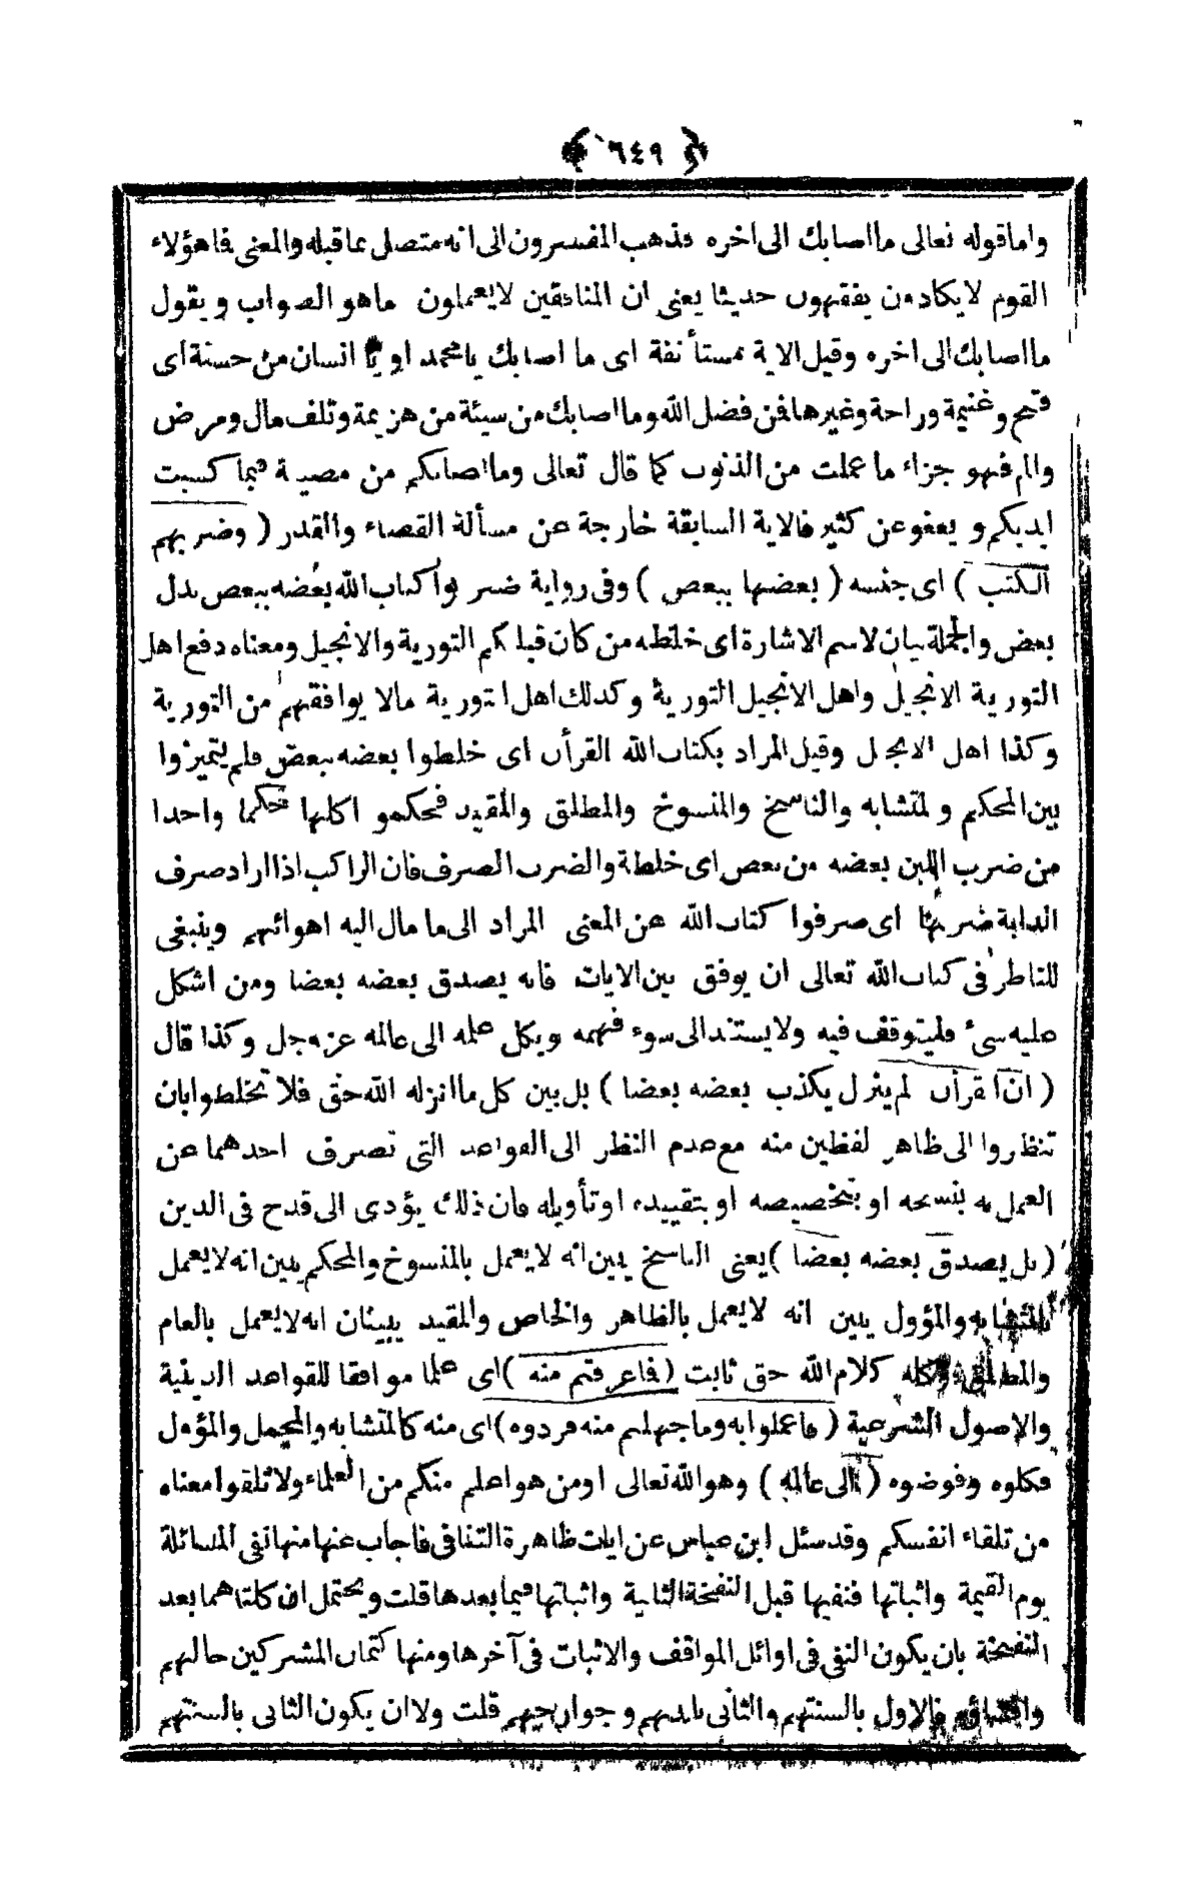 ﴿ ٦٤٩ ﴾
واما قوله تعالى ما اصابك الى اخره فذهب المفسرون الى انه متصل بما قبله والمعنى فما هؤلاء
القوم لا يكادون يفقهون حديثا يعنى ان المنافقين لا يعملون ماهو الصواب ويقول
ما اصابك الى اخره وقيل الاية مستأنفة اى ما اصابك يا محمد او يا انسان من حسنة اى
فتح وغنيمة وراحة وغيرها فمن فضل الله وما اصابك من سيئة من هزيمة وتلف مال ومرض
والم فهو جزاء ما عملت من الذنوب كما قال تعالى وما اصابكم من مصيبة فبما كسبت
ايديكم ويعفو عن كثير فالاية السابقة خارجة عن مسألة القضاء والقدر ( وضربهم
الكتب ) اى جنسه ( بعضها ببعض ) وفى رواية ضربوا كتاب الله بعضه ببعض بدل
بعض والجملة بيان لاسم الاشارة اى خلطه من كان قبلكم التورية والانجيل ومعناه دفع اهل
التورية الانجيل واهل الانجيل التورية وكذلك اهل التورية مالا يوافقهم من التورية
وكذا اهل الانجيل وقيل المراد بكتاب الله القرأن اى خلطوا بعضه ببعض فلم يتميزوا
بين المحكم والمتشابه والناسخ والمنسوخ والمطلق والمقيد فحكموا كلها حكما واحدا
من ضرب اللبن بعضه من بعض اى خلطة والضرب الصرف فان الراكب اذا اراد صرف
الدابة ضربها اى صرفوا كتاب الله عن المعنى المراد الى ما مال اليه اهوائهم وينبغى
للناظر فى كتاب الله تعالى ان يوفق بين الايات فانه يصدق بعضه بعضا ومن اشكل
عليه شئ فليتوقف فيه ولا يستند الى سوء فهمه ويكل علمه الى عالمه عز وجل وكذا قال
( ان القرأن لم ينزل يكذب بعضه بعضا ) بل بين كل ما انزله الله حق فلا تخلطوا بان
تنظروا الى ظاهر لفظين منه مع عدم النظر الى القواعد التى تصرف احدهما عن
العمل به بنسخه او بتخصيصه او بتقييده او تأويله فان ذلك يؤدى الى قدح فى الدين
( بل يصدق بعضه بعضا ) يعنى الناسخ يبين انه لا يعمل بالمنسوخ والمحكم يبين انه لا يعمل
بالمتشابه والمؤول يبين انه لا يعمل بالظاهر والخاص والمقيد يبينان انه لا يعمل بالعام
والمطلق وكله كلام الله حق ثابت ( فاعرفتم منه ) اى علما موافقا للقواعد الدينية
والاصول الشرعية ( فاعملوا به وما جهلتم منه فردوه ) اى منه كالمتشابه والمجمل والمؤول
فكلوه وفوضوه ( الى عالمه ) وهو الله تعالى او من هو اعلم منكم من العلماء ولا تلقوا معناه
من تلقاء انفسكم وقد سئل ابن عباس عن ايات ظاهرة التنافى فاجاب عنها منها نفى المسائلة
يوم القيمة واثباتها فنفيها قبل النفخة الثانية واثباتها فيما بعدها قلت ويحتمل ان كلتاهما بعد
النفخة بان يكون النفى فى اوائل المواقف والاثبات فى آخرها ومنها كتمان المشركين حالهم
وافشاؤه فالاول بالسنتهم والثانى بايديهم وجوارحهم قلت ولا ان يكون الثانى بالسنتهم